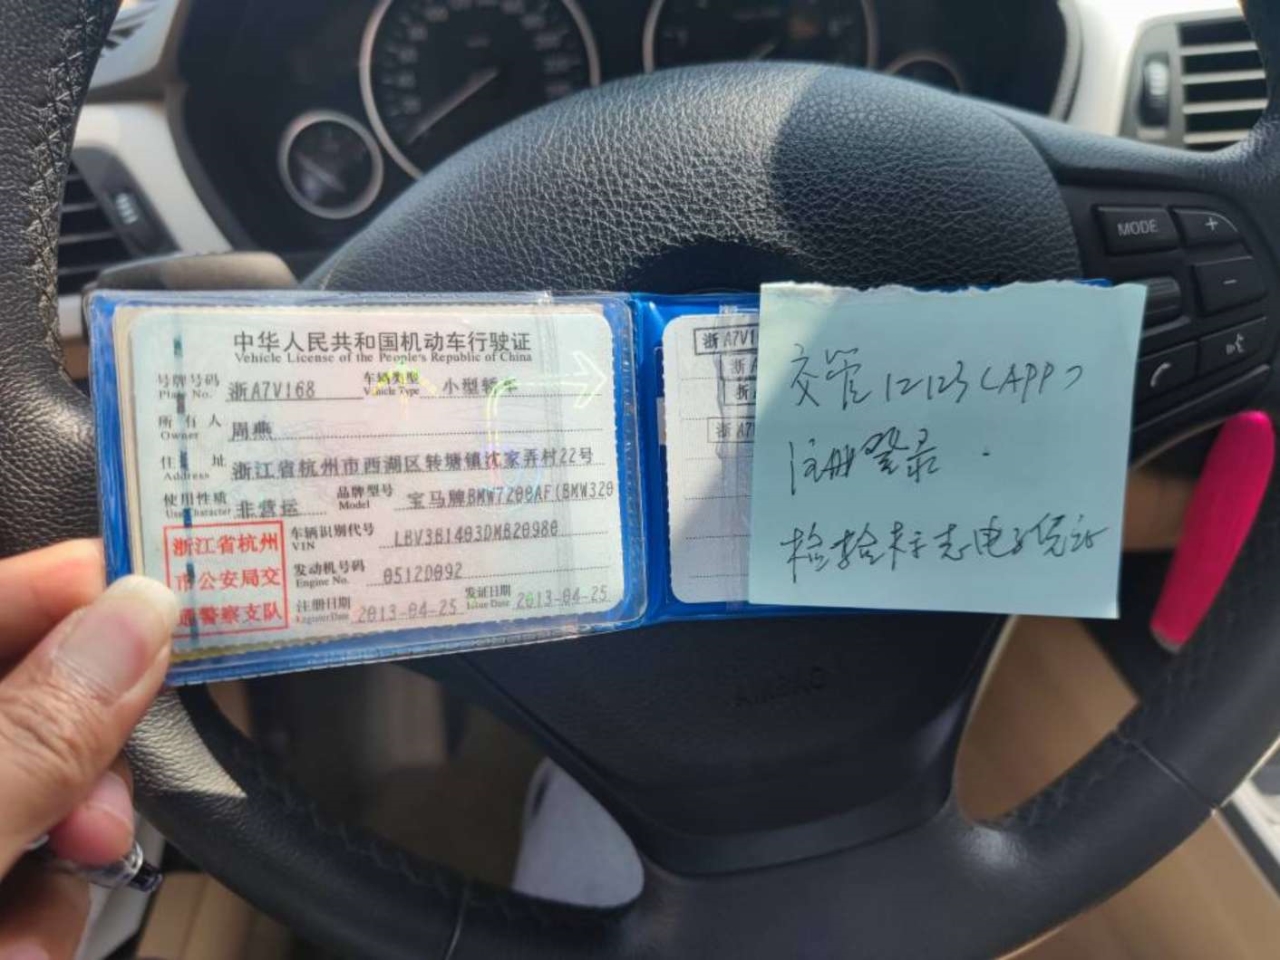 中华人民共和国机动车行驶证
Vehicle License of the People's Republic of China
号牌号码 浙A7V168 车辆类型 小型轿车
Plate No. Vehicle Type
所有人 周燕
Owner
住址 浙江省杭州市西湖区转塘镇沈家弄村22号
Address
使用性质 非营运 品牌型号 宝马牌BMW7200AF(BMW320
Use Character Model
浙江省杭州
市公安局交
通警察支队
车辆识别代号 LBV3B1403DMB20980
VIN
发动机号码 0512D092
Engine No.
注册日期 2013-04-25 发证日期 2013-04-25
Register Date Issue Date
浙A7V1
浙A
浙
浙A7
交管12123(APP)
注册登录.
检验标志电子凭证
MODE
+
-